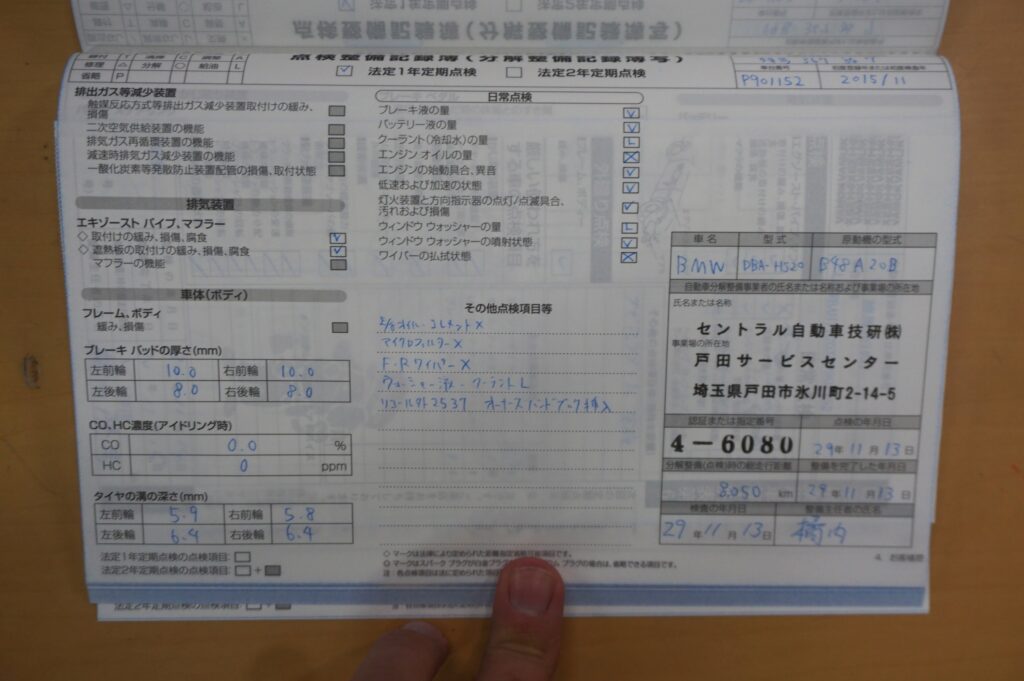 点検整備記録簿(分解整備記録簿写)
修理 △ 分解 ○ 給油 L
省略 P
法定1年定期点検 法定2年定期点検
P901152 2015/11
排出ガス等減少装置
触媒反応方式等排出ガス減少装置取付けの緩み、
損傷
二次空気供給装置の機能
排気ガス再循環装置の機能
減速時排気ガス減少装置の機能
一酸化炭素等発散防止装置配管の損傷、取付状態
排気装置
エキゾースト パイプ、マフラー
◇ 取付けの緩み、損傷、腐食
◇ 遮熱板の取付けの緩み、損傷、腐食
マフラーの機能
車体(ボディ)
フレーム、ボディ
緩み、損傷
ブレーキ パッドの厚さ(mm)
左前輪 10.0 右前輪 10.0
左後輪 8.0 右後輪 8.0
CO、HC濃度(アイドリング時)
CO 0.0 %
HC 0 ppm
タイヤの溝の深さ(mm)
左前輪 5.9 右前輪 5.8
左後輪 6.4 右後輪 6.4
法定1年定期点検の点検項目:
法定2年定期点検の点検項目: +
日常点検
ブレーキ液の量
バッテリー液の量
クーラント(冷却水)の量 L
エンジン オイルの量
エンジンの始動具合、異音
低速および加速の状態
灯火装置と方向指示器の点灯/点滅具合、
汚れおよび損傷
ウィンドウ ウォッシャーの量 L
ウィンドウ ウォッシャーの噴射状態
ワイパーの払拭状態
その他点検項目等
オイル・エレメント ×
マイクロフィルター ×
F・Rワイパー ×
ウォッシャー液・クーラント L
リコール外2537 オーナーズハンドブック挿入
◇ マークは法律により定められた距離指定省略可能項目です。
車名 型式 原動機の型式
BMW DBA-HS20 B48A20B
自動車分解整備事業者の氏名または名称および事業場の所在地
氏名または名称
セントラル自動車技研㈱
事業場の所在地
戸田サービスセンター
埼玉県戸田市氷川町2-14-5
認証または指定番号 点検の年月日
4-6080 29年11月13日
分解整備(点検)時の総走行距離 整備を完了した年月日
8,050 km 29年11月13日
検査の年月日 整備主任者の氏名
29年11月13日
4. お客様控